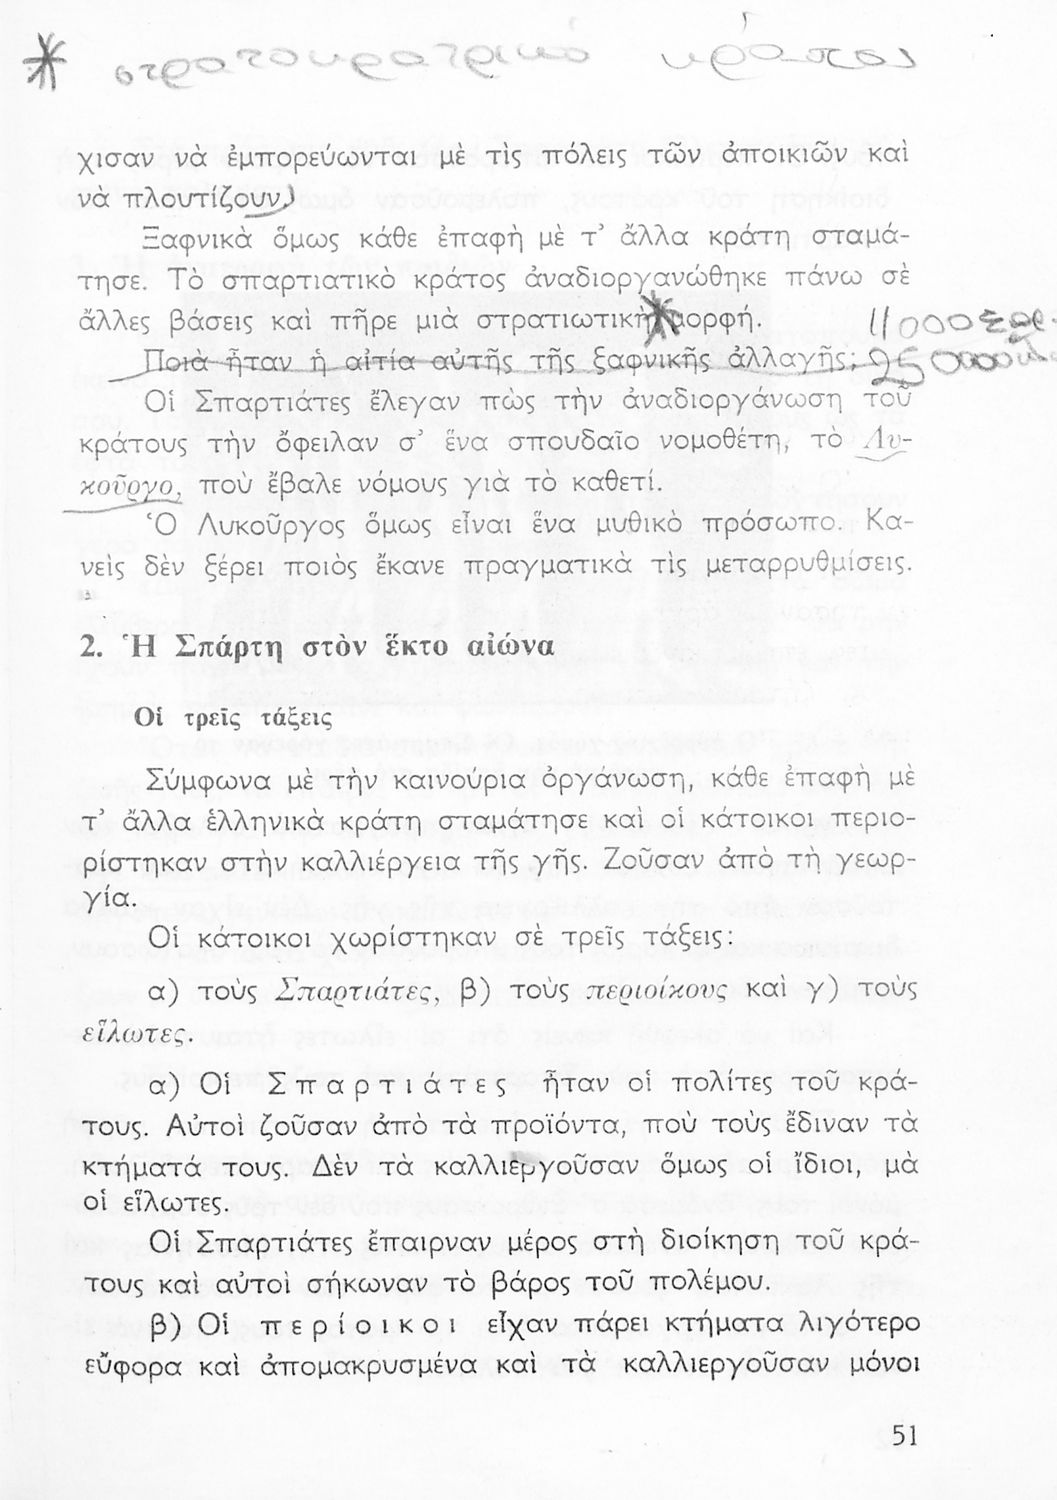 * στρατοκρατικό κράτος
χισαν νὰ ἐμπορεύωνται μὲ τὶς πόλεις τῶν ἀποικιῶν καὶ
νὰ πλουτίζουν.
Ξαφνικὰ ὅμως κάθε ἐπαφὴ μὲ τ᾽ ἄλλα κράτη σταμά-
τησε. Τὸ σπαρτιατικὸ κράτος ἀναδιοργανώθηκε πάνω σὲ
ἄλλες βάσεις καὶ πῆρε μιὰ στρατιωτικὴ* μορφή.
11000
Ποιὰ ἦταν ἡ αἰτία αὐτῆς τῆς ξαφνικῆς ἀλλαγῆς;
Οἱ Σπαρτιάτες ἔλεγαν πὼς τὴν ἀναδιοργάνωση τοῦ
κράτους τὴν ὄφειλαν σ᾽ ἕνα σπουδαῖο νομοθέτη, τὸ Λυ-
κοῦργο, ποὺ ἔβαλε νόμους γιὰ τὸ καθετί.
Ὁ Λυκοῦργος ὅμως εἶναι ἕνα μυθικὸ πρόσωπο. Κα-
νεὶς δὲν ξέρει ποιὸς ἔκανε πραγματικὰ τὶς μεταρρυθμίσεις.
2. Ἡ Σπάρτη στὸν ἕκτο αἰώνα
Οἱ τρεῖς τάξεις
Σύμφωνα μὲ τὴν καινούρια ὀργάνωση, κάθε ἐπαφὴ μὲ
τ᾽ ἄλλα ἑλληνικὰ κράτη σταμάτησε καὶ οἱ κάτοικοι περιο-
ρίστηκαν στὴν καλλιέργεια τῆς γῆς. Ζοῦσαν ἀπὸ τὴ γεωρ-
γία.
Οἱ κάτοικοι χωρίστηκαν σὲ τρεῖς τάξεις:
α) τοὺς Σπαρτιάτες, β) τοὺς περιοίκους καὶ γ) τοὺς
εἵλωτες.
α) Οἱ Σπαρτιάτες ἦταν οἱ πολίτες τοῦ κρά-
τους. Αὐτοὶ ζοῦσαν ἀπὸ τὰ προϊόντα, ποὺ τοὺς ἔδιναν τὰ
κτήματά τους. Δὲν τὰ καλλιεργοῦσαν ὅμως οἱ ἴδιοι, μὰ
οἱ εἵλωτες.
Οἱ Σπαρτιάτες ἔπαιρναν μέρος στὴ διοίκηση τοῦ κρά-
τους καὶ αὐτοὶ σήκωναν τὸ βάρος τοῦ πολέμου.
β) Οἱ περίοικοι εἶχαν πάρει κτήματα λιγότερο
εὔφορα καὶ ἀπομακρυσμένα καὶ τὰ καλλιεργοῦσαν μόνοι
51